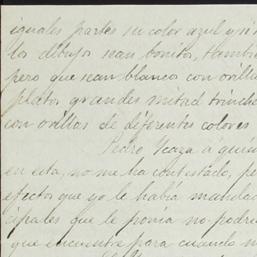 iguales partes su color azul y si
los dibujos sean bonitos, tambie
pero que sean blancos con orilla
platos grandes mitad trinche
con orillos de diferentes colores
Pedro Icaza á quien
en esta, no me ha contestado, pe
efectos que yo le había mandad
cipales que le ponia no podri
que encuentre para cuando m